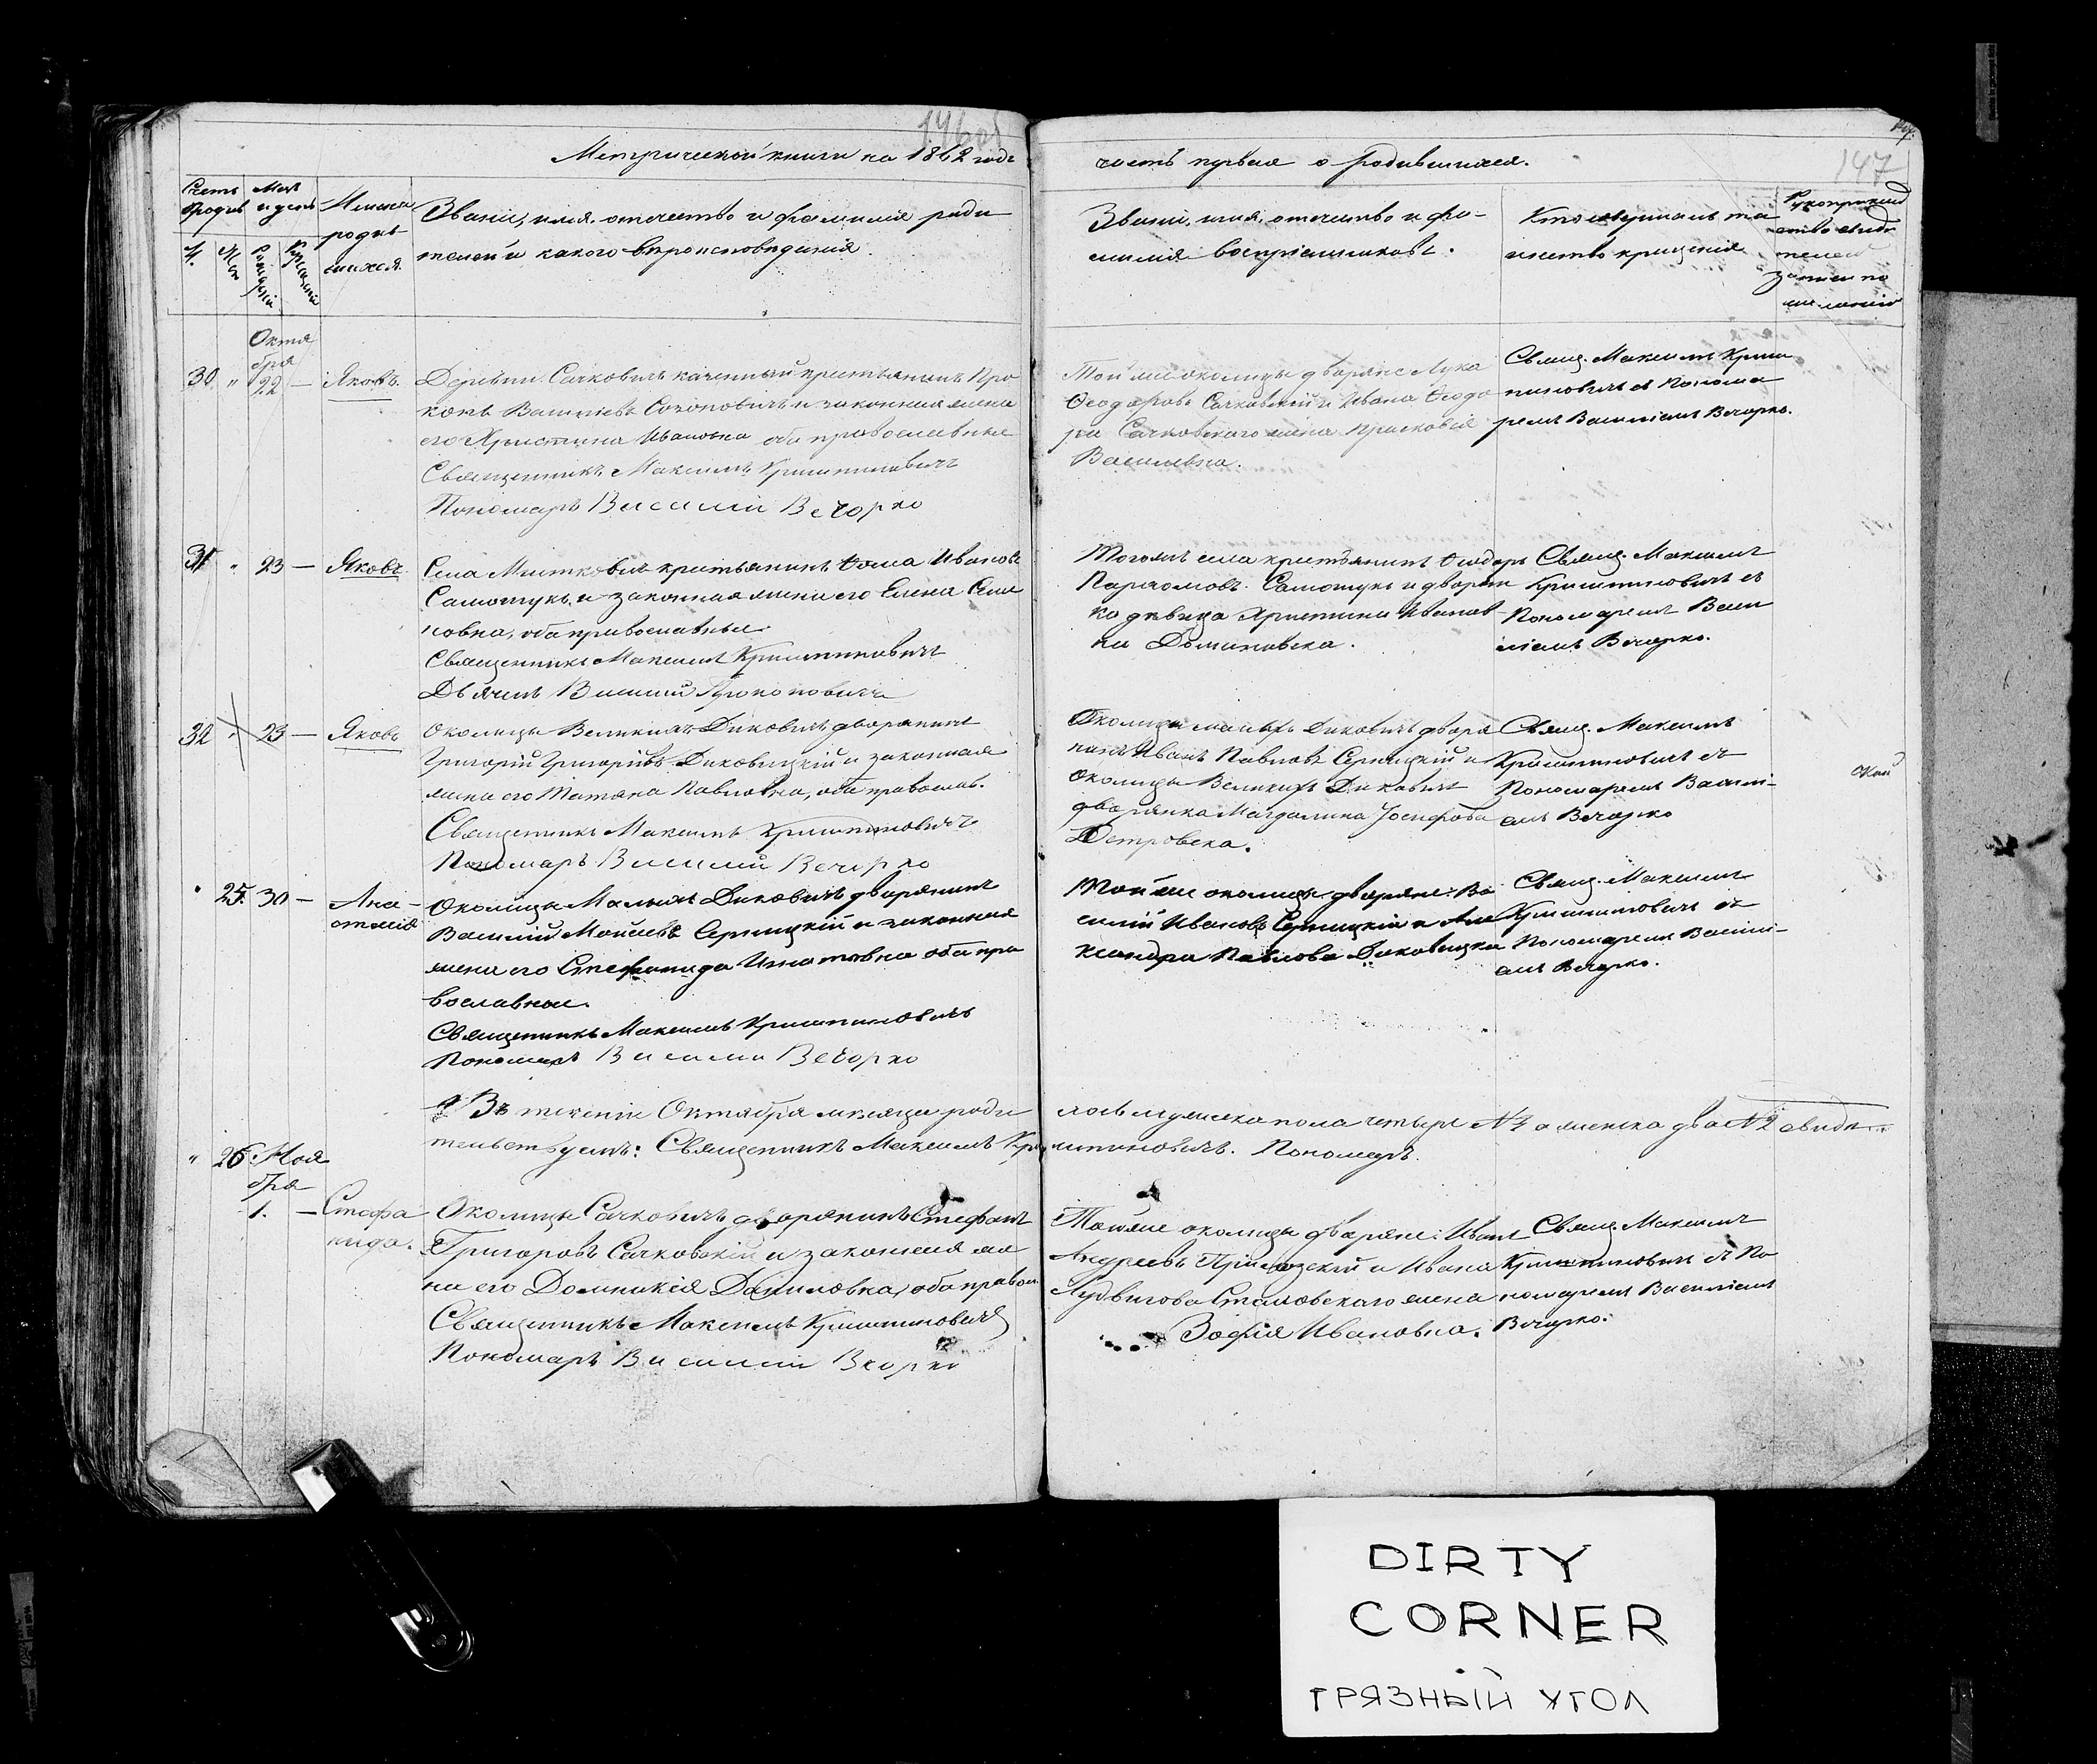 146об
Метрической книги на 1862 годъ
часть первая о родившихся.
147
Счетъ родив
Мсцъ и день
Имена родив шихся.
Званіе, имя, отечество и фамилія роди
телей и какого вѣроисповѣданія.
Званіе, имя, отечество и фа-
милія воспріемниковъ.
Кто совершалъ та
инство крещенія
Рукоприклад
ство свидѣ
телей
записи по
желанію
М.
Ж.
Рожденія
Крещенія
Октя
бря
30 " 22 — Яковъ.
Деревни Сачковичъ казенный крестьянинъ Про
копъ Васильевъ и законная жена
его Христина Ивановна оба православные
Священникъ Максимъ Криштиновичъ
Пономарь Василій Вечорко
Той же околицы дворяне Лука
Феодоровъ Сачковскій и Ивана Феодо
ра Сачковскаго жена Прасковія
Васильевна.
Свящ. Максимъ Кришти
новичъ съ Понома
ремъ Василіемъ Вечорко.
31 " 23 — Яковъ
Села Местковичъ крестьянинъ Фома Ивановъ
Самотукъ и законная жена его Елена Семе
новна, оба православные.
Священникъ Максимъ Криштиновичъ
Дьячекъ Василий Прокоповичъ
Тогожъ села крестьянинъ Феодоръ
Пархомовъ Самотукъ и дворян
ка дѣвица Христина Иванов
на Домановска.
Свящ. Максимъ
Криштиновичъ съ
Пономаремъ Васи
ліемъ Вечорко.
32 " 23 — Яковъ
Околицы Великихъ Диковичъ дворянинъ
Григорій Григорьевъ Диковицкій и законная
жена его Татьяна Павловна, оба правосла.
Священникъ Максимъ Криштиновичъ
Пономарь Василий Вечорко
Околицы малыхъ Диковичъ дворя
нинъ Иванъ Павловъ Серницкій и
околицы Великихъ Диковичъ
дворянка Магдалина Іосифова
Петровска.
Свящ. Максимъ
Криштиновичъ съ
Пономаремъ Васили-
емъ Вечорко
" 25. 30 — Ана-
стасія
Околицы Малыхъ Диковичъ дворянинъ
Василій Мойсеевъ Серницкій и законная
жена его Стефанида Игнатовна оба пра
вославные.
Священникъ Максимъ Криштиновичъ
Пономарь Василий Вечорко
Той же околицы дворяне: Ва
силій Ивановъ Серницкій и Але
ксандра Павлова Диковицка
Свящ. Максимъ
Криштиновичъ съ
Пономаремъ Васили-
емъ Вечорко.
Въ теченіи Октября мѣсяца роди
лось мужеска пола четыре № 4 а женска два № 2 свидѣ
тельствуемъ: Священникъ Максимъ Кри
штиновичъ. Пономарь
" 26 Ноя
бря
1. — Стефа
нида.
Околицы Сачковичъ дворянинъ Стефанъ
Григоровъ Сачковскій и законная же
на его Домникія Даниловна, оба правосл.
Священникъ Максимъ Криштиновичъ
Пономарь Василий Вечорко
Тойже околицы дворяне: Иванъ
Андреевъ и Ивана
Лудвигова Стаховскаго жена
Зофія Ивановна.
Свящ. Максимъ
Криштиновичъ съ По
номаремъ Василіемъ
Вечорко.
DIRTY
CORNER
ГРЯЗНЫЙ УГОЛ